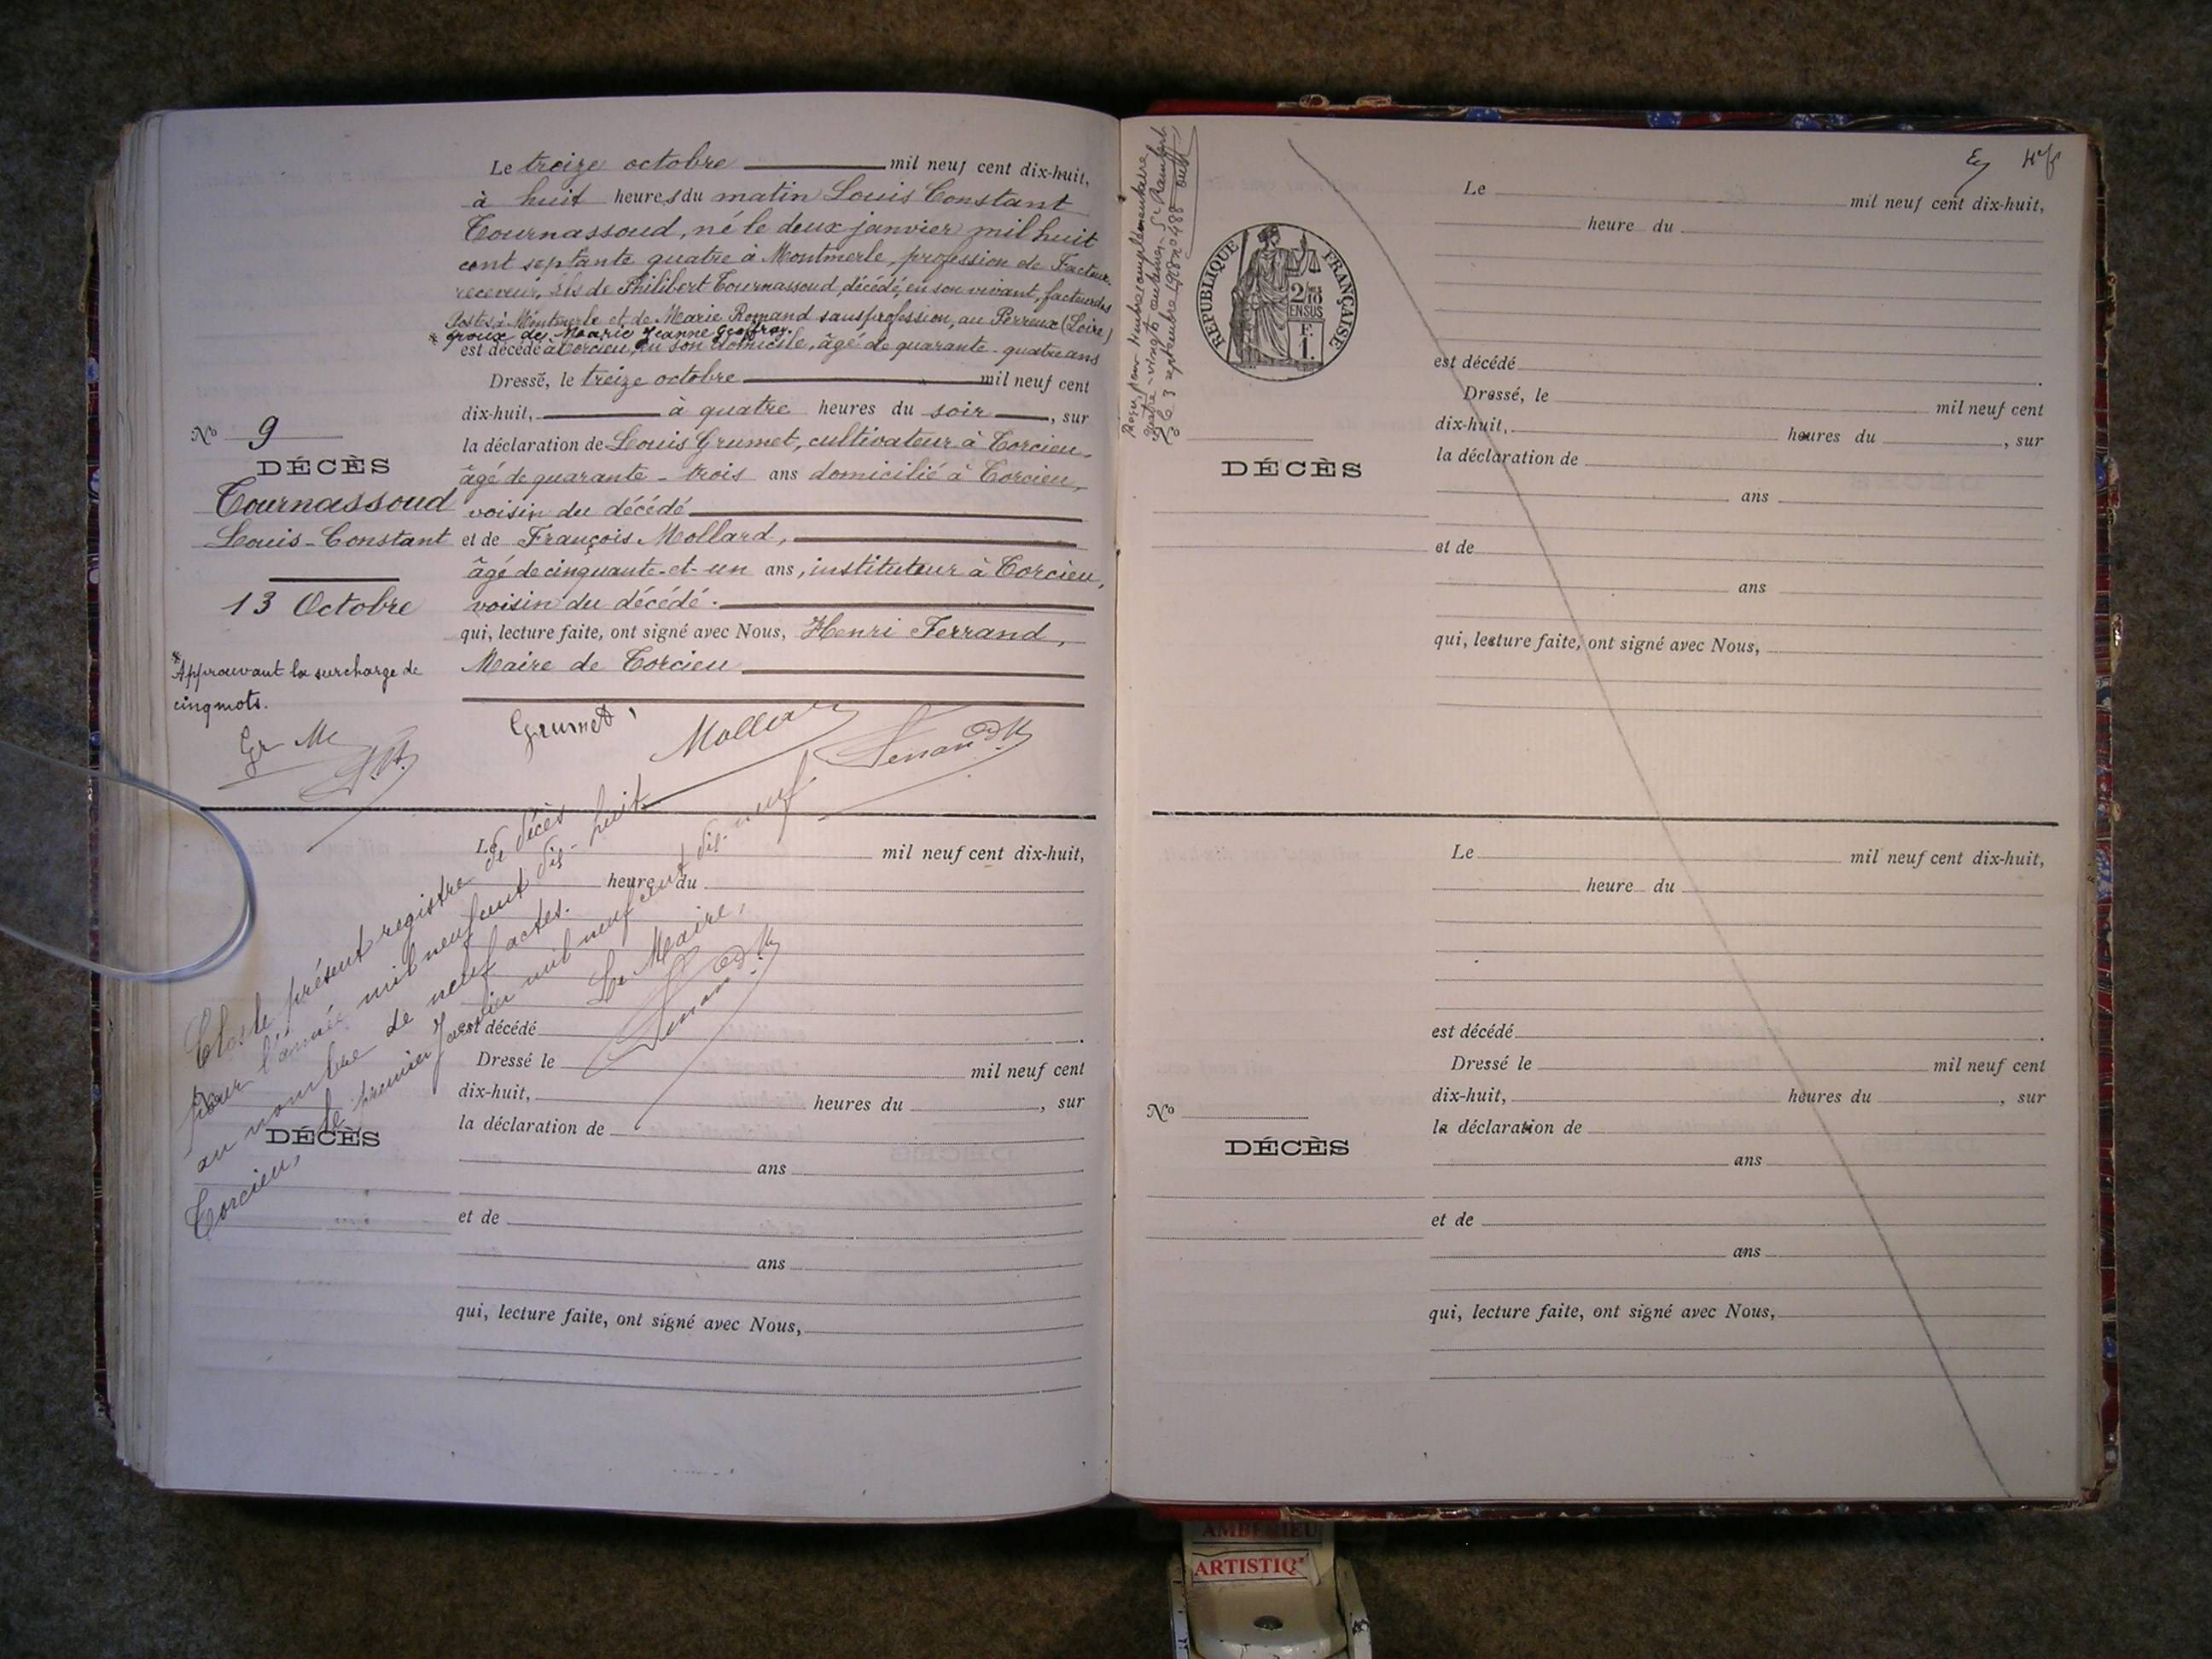 Le treize octobre mil neuf cent dix-huit,
à huit heures du matin Louis Constant
Tournassoud, né le deux janvier mil huit
cent septante quatre à Montmerle, profession de Facteur
receveur, fils de Philibert Tournassoud, décédé, en son vivant, facteur des
Postes à Montmerle et de Marie Romand sans profession, au Perreux (Loire)
* époux de Marie Jeanne Geoffray.
est décédé à Torcieu, en son domicile, âgé de quarante-quatre ans
Dressé, le treize octobre mil neuf cent
dix-huit, à quatre heures du soir, sur
la déclaration de Louis Grumet, cultivateur à Torcieu,
âgé de quarante-trois ans domicilié à Torcieu,
voisin du décédé
et de François Mollard,
âgé de cinquante-et-un ans, instituteur à Torcieu,
voisin du décédé.
qui, lecture faite, ont signé avec Nous, Henri Ferrand,
Maire de Torcieu
No 9
DÉCÈS
Tournassoud
Louis-Constant
13 Octobre
* Approuvant la surcharge de
cinq mots.
Gr Mc
Grumet
Mollard
Ferrand H
Clos le présent registre de décès
pour l'année mil neuf cent dix-huit
au nombre de neuf actes.
Torcieu, le premier Janvier mil neuf cent dix-neuf
Le Maire,
Ferrand H
Le mil neuf cent dix-huit,
heure du
est décédé .
Dressé le mil neuf cent
dix-huit, heures du , sur
la déclaration de
ans
et de
ans
qui, lecture faite, ont signé avec Nous,
No
DÉCÈS
quatre-vingts centimes St Rambert
Le 3 septembre 1918 no 488
RÉPUBLIQUE FRANÇAISE
2/10
EN SUS
F.
1.
Le mil neuf cent dix-huit,
heure du
est décédé .
Dressé, le mil neuf cent
dix-huit, heures du , sur
la déclaration de
ans
et de
ans
qui, lecture faite, ont signé avec Nous,
DÉCÈS
Le mil neuf cent dix-huit,
heure du
est décédé .
Dressé le mil neuf cent
dix-huit, heures du , sur
la déclaration de
ans
et de
ans
qui, lecture faite, ont signé avec Nous,
No
DÉCÈS
AMBERIEU
ARTISTIQ'